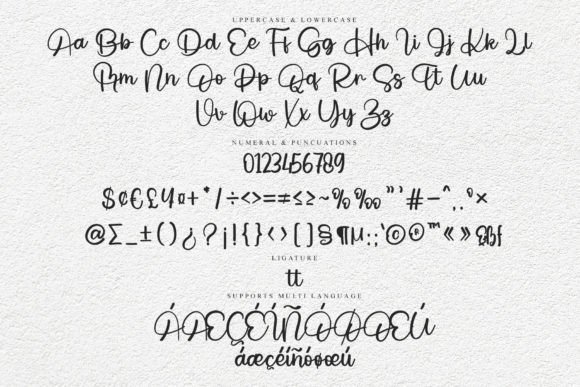 UPPERCASE & LOWERCASE
Aa Bb Cc Dd Ee Ff Gg Hh Ii Jj Kk Ll
Mm Nn Oo Pp Qq Rr Ss Tt Uu
Vv Ww Xx Yy Zz
NUMERAL & PUNCUATIONS
0123456789
$¢€£¥¤+*/÷<>=≠≤≥~%‰"'#–^,.°×
@∑_±()¿?¡!{}<>[]§¶µ:;'©®™«»
LIGATURE
tt
SUPPORTS MULTI LANGUAGE
ÁÆÇÉÍÑÓØŒÚ
áæçéíñóøœú